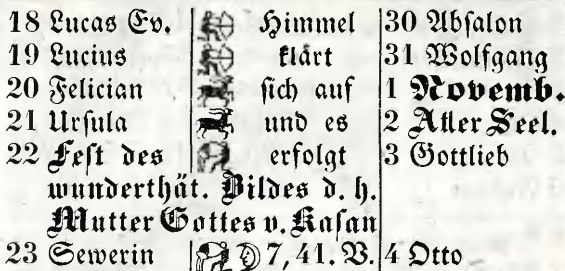 18 Lucas Ev. Himmel 30 Abſalon
19 Lucius klärt 31 Wolfgang
20 Felician ſich auf 1 Novemb.
21 Urſula und es 2 Aller Seel.
22 Feſt des erfolgt 3 Gottlieb
wunderthät. Bildes d. h.
Mutter Gottes v. Kaſan
23 Sewerin 7, 41. V. 4 Otto